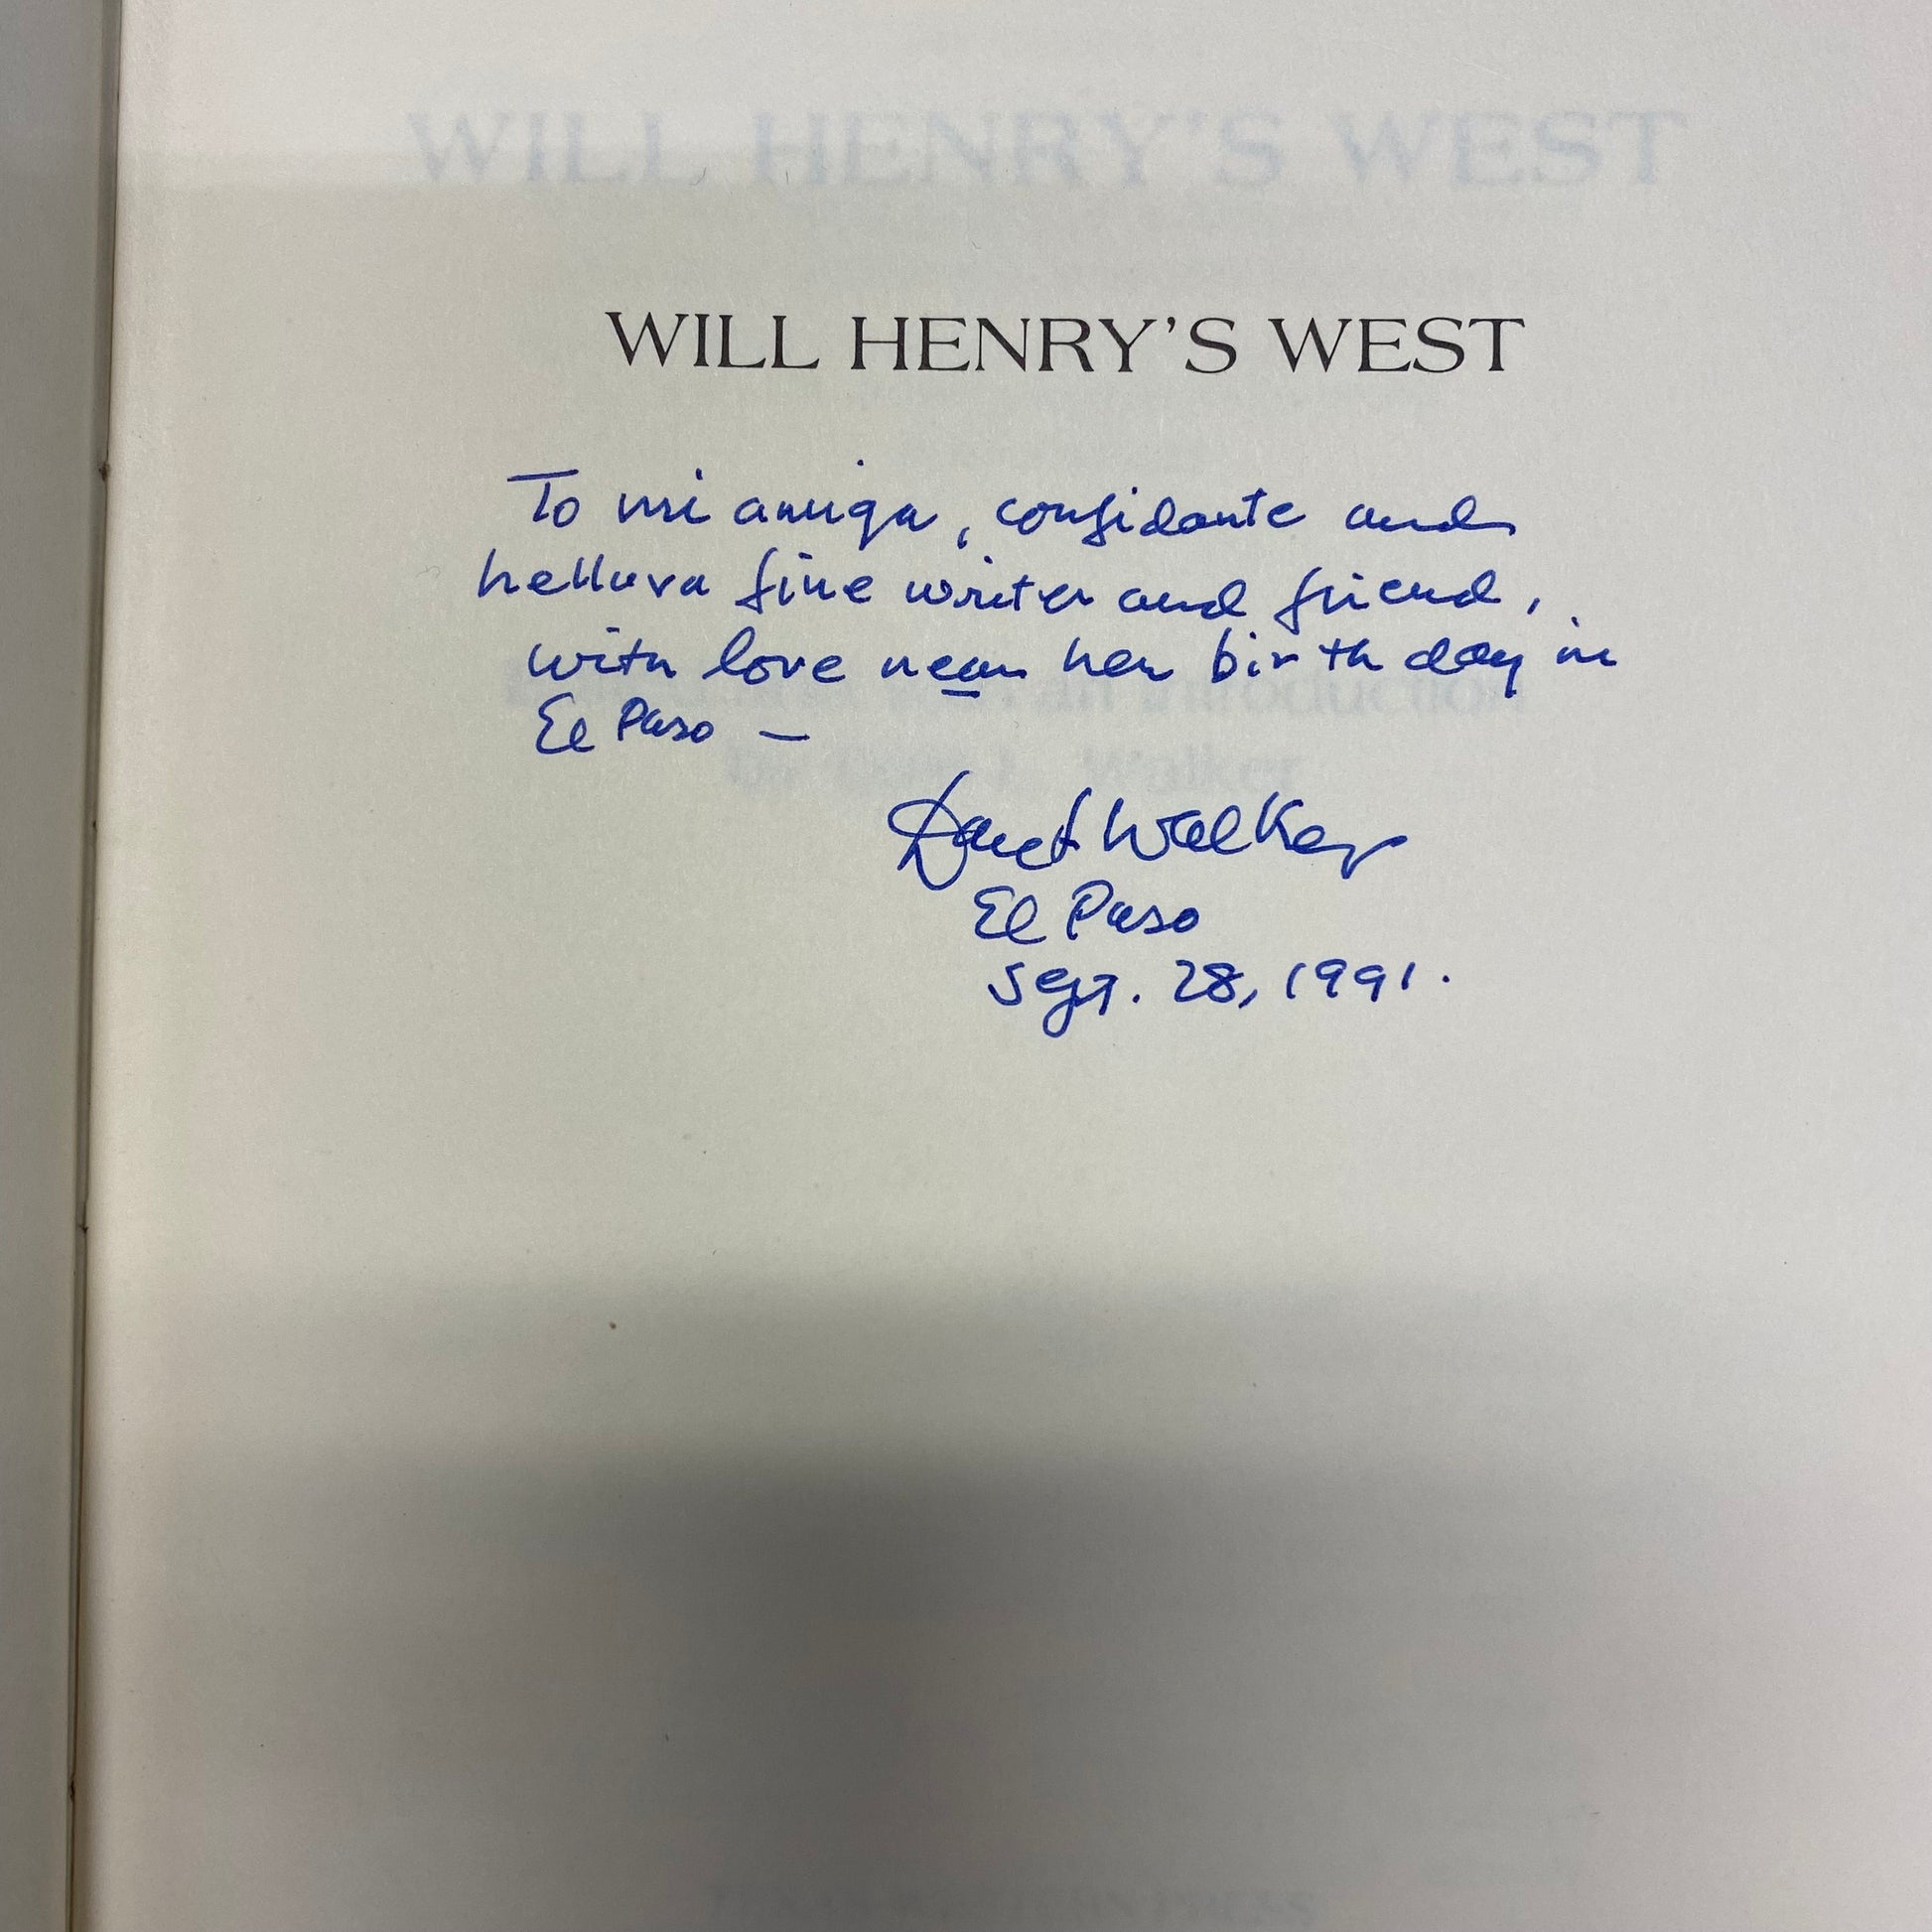 WILL HENRY'S WEST
WILL HENRY'S WEST
To mi amiga, confidante and
helluva fine writer and friend,
with love near her birthday in
El Paso —
an introduction
by Dale L. Walker
Walker
El Paso
Sept. 28, 1991.
TEXAS WESTERN PRESS